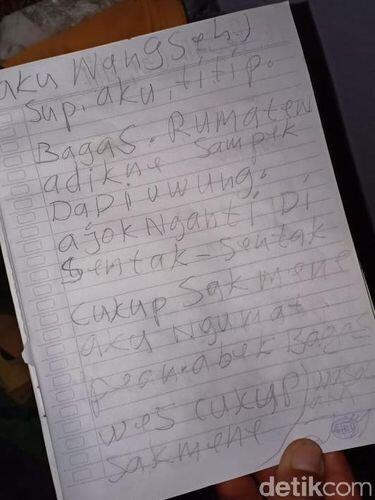 aku Wangseh.)
Sup. aku, titip.
Bagas. Rumaten
adikne Sampek
Dadi uwung.
ajok Nganti Di
Sentak-Sentak
cukup Sakmene
aku Ngumat
pean. abek Bagas
wes cukup
sakmene
detikcom